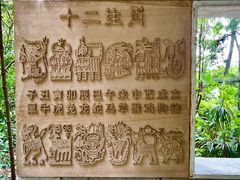 十二生肖
子丑寅卯辰巳午未申酉戌亥
鼠牛虎兔龙蛇马羊猴鸡狗猪